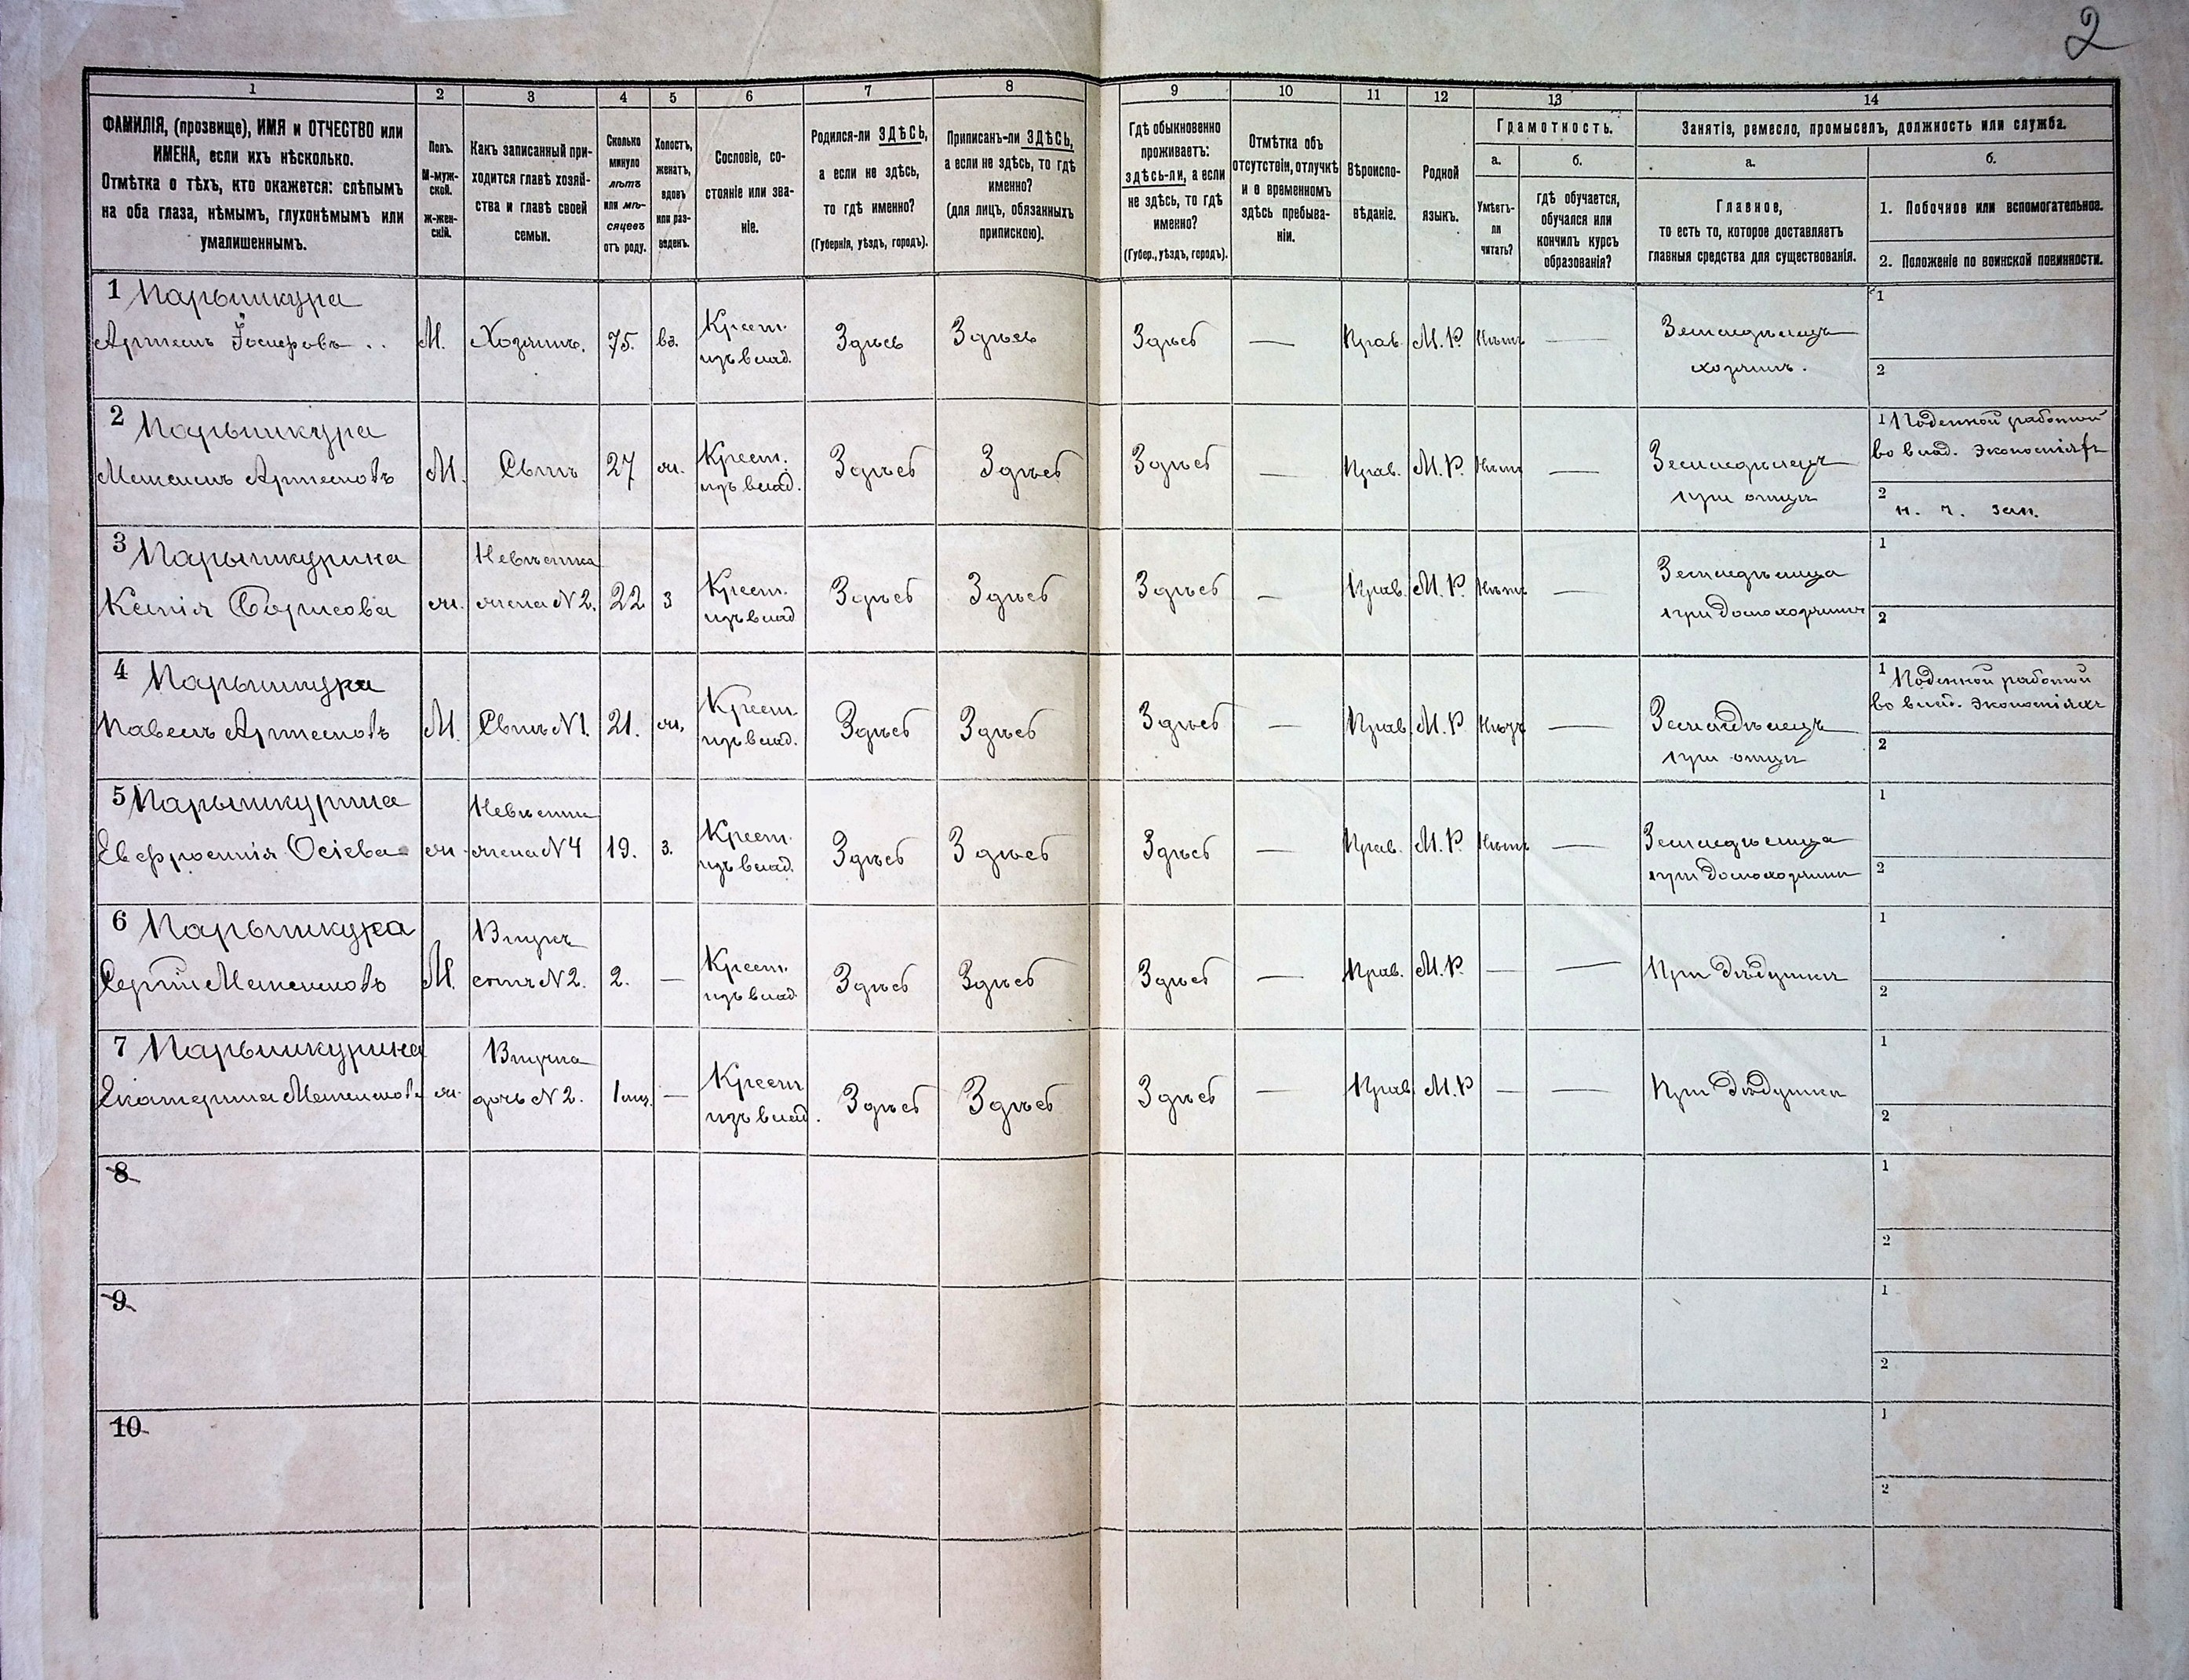 2
1 2 3 4 5 6 7 8 9 10 11 12 13 14
ФАМИЛІЯ, (прозвище), ИМЯ и ОТЧЕСТВО или
ИМЕНА, если ихъ нѣсколько.
Отмѣтка о тѣхъ, кто окажется: слѣпымъ
на оба глаза, нѣмымъ, глухонѣмымъ или
умалишеннымъ.
Полъ.
М-муж-
ской.
ж-жен-
скій.
Какъ записанный при-
ходится главѣ хозяй-
ства и главѣ своей
семьи.
Сколько
минуло
лѣтъ
или мѣ-
сяцевъ
отъ роду.
Холостъ,
женатъ,
вдовъ
или раз-
веденъ.
Сословіе, со-
стояніе или зва-
ніе.
Родился-ли ЗДѢСЬ,
а если не здѣсь,
то гдѣ именно?
(Губернія, уѣздъ, городъ).
Приписанъ-ли ЗДѢСЬ,
а если не здѣсь, то гдѣ
именно?
(для лицъ, обязанныхъ
припискою).
Гдѣ обыкновенно
проживаетъ:
здѣсь-ли, а если
не здѣсь, то гдѣ
именно?
(Губер., уѣздъ, городъ).
Отмѣтка объ
отсутствіи, отлучкѣ
и о временномъ
здѣсь пребыва-
ніи.
Вѣроиспо-
вѣданіе.
Родной
языкъ.
Грамотность.
а.
Умѣетъ-
ли
читать?
б.
гдѣ обучается,
обучался или
кончилъ курсъ
образованія?
Занятіе, ремесло, промыселъ, должность или служба.
а.
Главное,
то есть то, которое доставляетъ
главныя средства для существованія.
б.
1. Побочное или вспомогательное.
2. Положеніе по воинской повинности.
1 Парышкура
Артемъ Іосифовъ
М.
Хозяинъ.
75.
вд.
Крест.
изъ влад.
Здѣсь
Здѣсь
Здѣсь
—
Прав.
М. Р.
Нѣтъ
—
Земледѣлецъ
хозяинъ.
1
2
2 Парышкура
Максимъ Артемовъ
М.
Сынъ
27
ж.
Крест.
изъ влад.
Здѣсь
Здѣсь
Здѣсь
—
Прав.
М. Р.
Нѣтъ
—
Земледѣлецъ
при отцѣ
1 Поденной работой
во влад. экономіяхъ
2
н. ч. зап.
3 Парышкурина
Ксенія Борисова
ж.
Невѣстка
жена N 2.
22
З
Крест.
изъ влад
Здѣсь
Здѣсь
Здѣсь
—
Прав.
М. Р.
Нѣтъ
—
Земледѣлица
при домохозяинѣ
1
2
4 Парышкура
Павелъ Артемовъ
М.
Сынъ N 1.
21.
ж.
Крест.
изъ влад.
Здѣсь
Здѣсь
Здѣсь
—
Прав.
М. Р.
Нѣтъ
—
Земледѣлецъ
при отцѣ
1 Поденной работой
во влад. экономіяхъ
2
5 Парышкурина
Евфросинія Осіева
ж.
Невѣстка
жена N 4
19.
З.
Крест.
изъ влад.
Здѣсь
Здѣсь
Здѣсь
—
Прав.
М. Р.
Нѣтъ
—
Земледѣлица
при домохозяинѣ
1
2
6 Парышкура
Сергій Максимовъ
М.
Внукъ
сынъ N 2.
2.
—
Крест.
изъ влад.
Здѣсь
Здѣсь
Здѣсь
—
Прав.
М. Р.
—
—
При дѣдушкѣ
1
2
7 Парышкурина
Екатерина Максимова
ж.
Внучка
дочь N 2.
1 мц.
—
Крест
изъ влад.
Здѣсь
Здѣсь
Здѣсь
—
Прав.
М. Р
—
—
При дѣдушкѣ
1
2
8
1
2
9
1
2
10
1
2